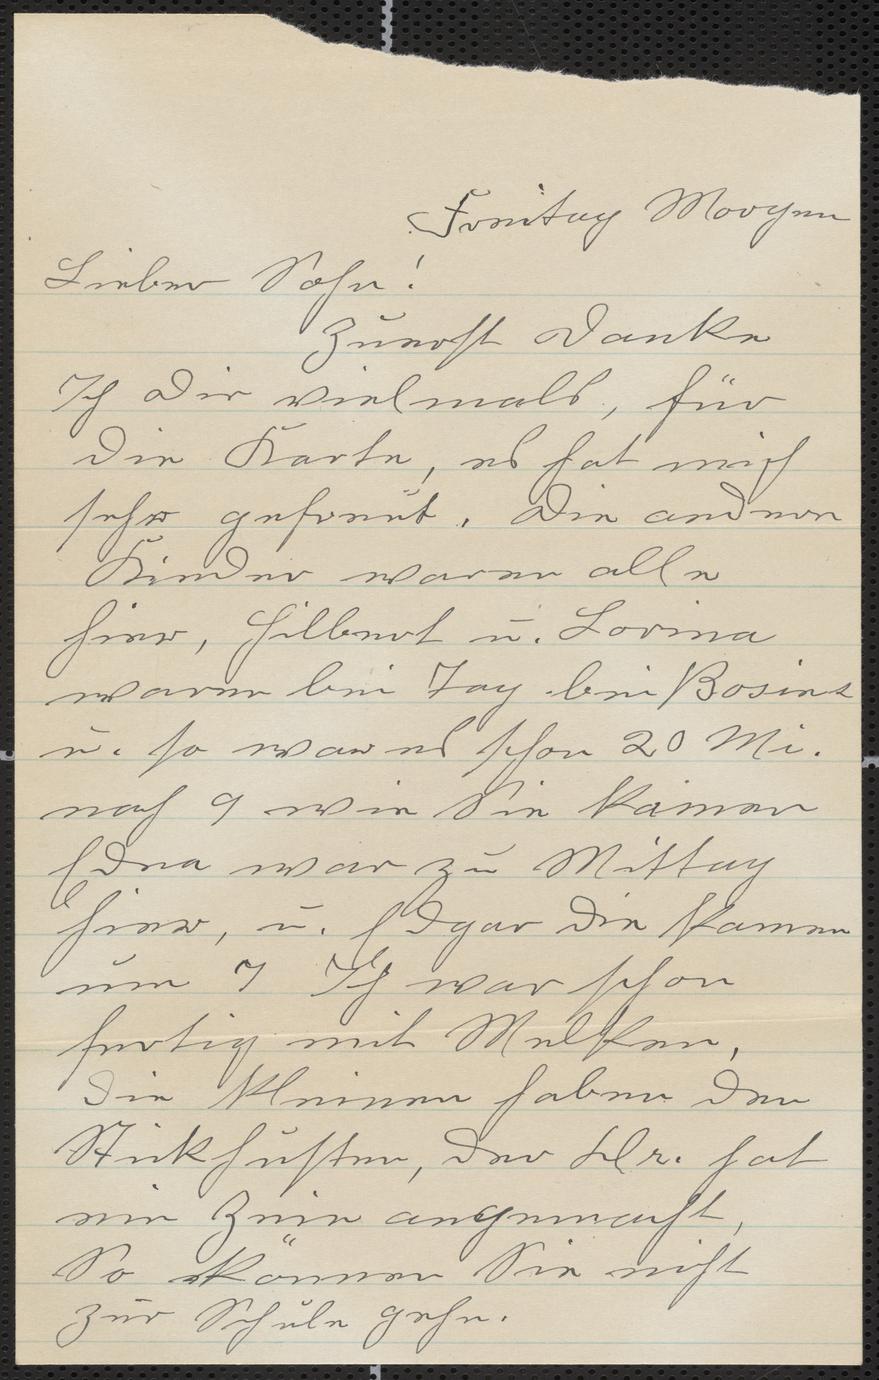 Freitag Morgen
Lieber Sohn!
Zuerst Danke
Ich Dir vielmals, für
Die Karte, es hat mich
sehr gefreut. Die andern
Kinder waren alle
hier, Hilbert u. Lorina
waren bei Tag bei
u. so war es schon 20 Mi.
nach 9 wie Sie kamen
Edna war zu Mittag
hier, u. Edgar die kamen
um 7 Ich war schon
fertig mit Melken,
Die kleinen haben den
Stickhusten, der Dr. hat
ein Zein angemacht,
So können Sie nicht
zur Schule gehn.